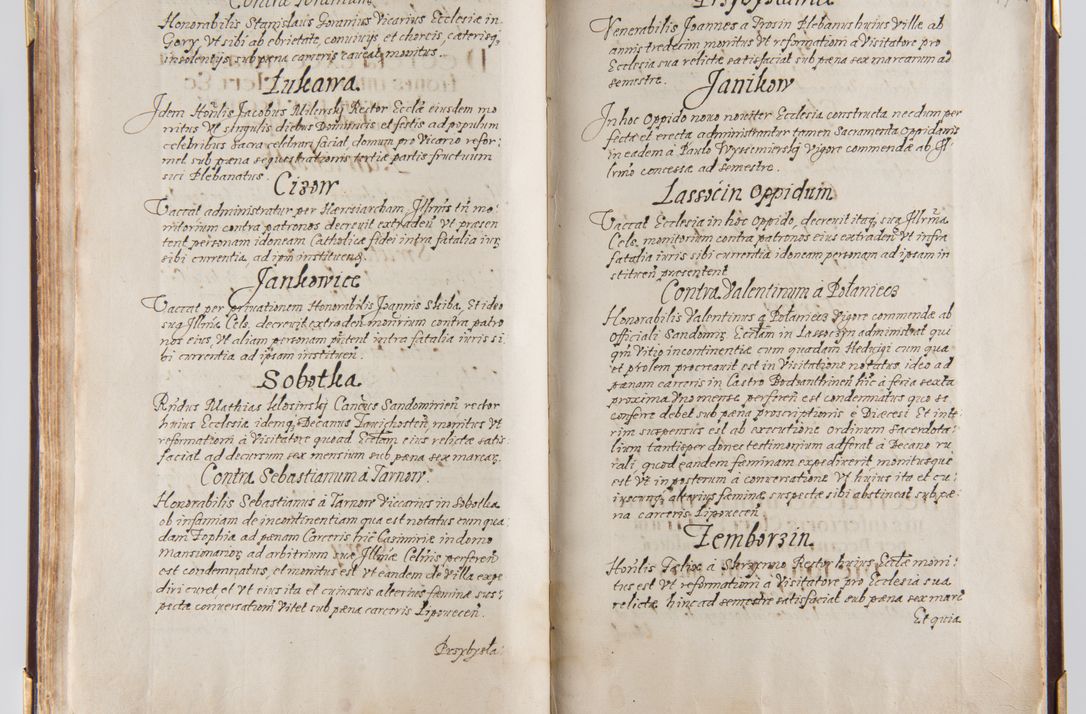 Contra Goranium
Honorabilis Stanislaus Goranius Vicarius Ecclesiæ in
Gory, Vt sibi ab ebrietate, conuiuijs et choreis, cæterisq,
insolentijs, sub pæna carceris caueat monitus.
Łukawa
Idem Honlis Jacobus Milewskj Rector Ecclæ eiusdem mo:
nitus Vt singulis diebus Dominicis et festis ad populum
celebribus Sacra celebrari faciat, domum pro Vicario refor:
met sub pæna sequestrationis tertiæ partis fructuum
sui Plebanatus.
Cizow
Vaccat administratur per Hæresiarcham, Illrmis tn mo:
nitorium contra patronos decreuit extraden Vt præsen
tent personam idoneam Catholicæ fidei intra fatalia iuris
sibi currentia, ad ipm instituend
Jankowice
Vaccat per priuationem Honorabilis Joannis Skiba, Et ideo
sua Illmia Cels. decreuit extraden monirium contra patro
nos eius, Vt aliam personam pntent intra fatalia iuris si:
bi currentia ad ipsam instituen.
Sobotka
Rndus Mathias Klosinskj Canocus Sandomirien rector
huius Ecclesiæ idemq, Decanus Zauichosten monitus Vt
reformationi à Visitatore quoad Ecclam eius relictæ satis:
faciat ad decursum sex mensium sub pæna sex marcar.
Contra Sebastianum à Tarnow.
Honorabilis Sebastianus à Tarnow Viccarius in Sobotka
ob infamiam de incontinentiam qua est notatus cum qua:
dam Zophia ad pænam Carceris hic Casimiriæ in domo
mansionarior ad arbitrium suæ Illmiæ Celnis perferen
est condemnatus, et monitus est Vt eandem de Villa expe
diri curet et Vt eius ita et cuiusuis alterius fæminæ sus:
pectæ conuersationi Vitet sub pæna carceris Lipouecen.
Przybysła:
Venerabilis Joannes à Prosin Plebanus huius Villæ ab
annis tredecim monitus Vt reformationi à Visitatore pro
Ecclesia sua relictæ satisfaciat sub pæna sex marcarum ad
semestre.
Janikow
In hoc Oppido nouo nouiter Ecclesia constructa necdum per
fecta et erecta administrantur tamen Sacramenta Oppidanis
in eadem à Paulo Wyszemierskj Vigore commendæ ab Il
lrmo concessæ ad semestre.
Lassocin Oppidum
Vaccat Ecclesia in hoc Oppido, decreuit itaq, sua Illrma
Cels. monitorium contra patronos eius extraden Vt infra
fatalia iuris sibi currentia idoneam personam ad ipsam in
stituen præsentent
Contra Valentinum à Połaniecz
Honorabilis Valentinus à Połaniecz Vigore commendæ ab
Officiali Sandomir, Ecclam in Lassoczyn administrat qui
qm Vitio incontinentiæ cum quadam Heduigi cum qua
et prolem procreauit est in Visitatione notatus ideo ad
pænam carceris in Castro Bodzanthinen hic à feria sexta
proxima Vno mense perferen est condemnatus quo se
conferre debet sub pæna proscriptionis è Diæcesi Et inte:
rim suspensus est ab executione Ordinum Sacerdota:
lium tantisper donec testimonium adferat à Decano ru
rali, quod eandem fæminam expediuerit monitusque
est Vt in posterum à conuersatione Vt huius ita et cu:
iuscunq, alterius fæminæ suspectæ sibi abstineat sub pæ:
na carceris Lipouecen.
Zemborzin
Honlis Felix à Skrzynno Rector huius Ecclæ moni:
tus est Vt reformationi à Visitatore pro Ecclesia sua
relictæ hinc ad semestre satisfaciat sub pæna sex marc
Et quia